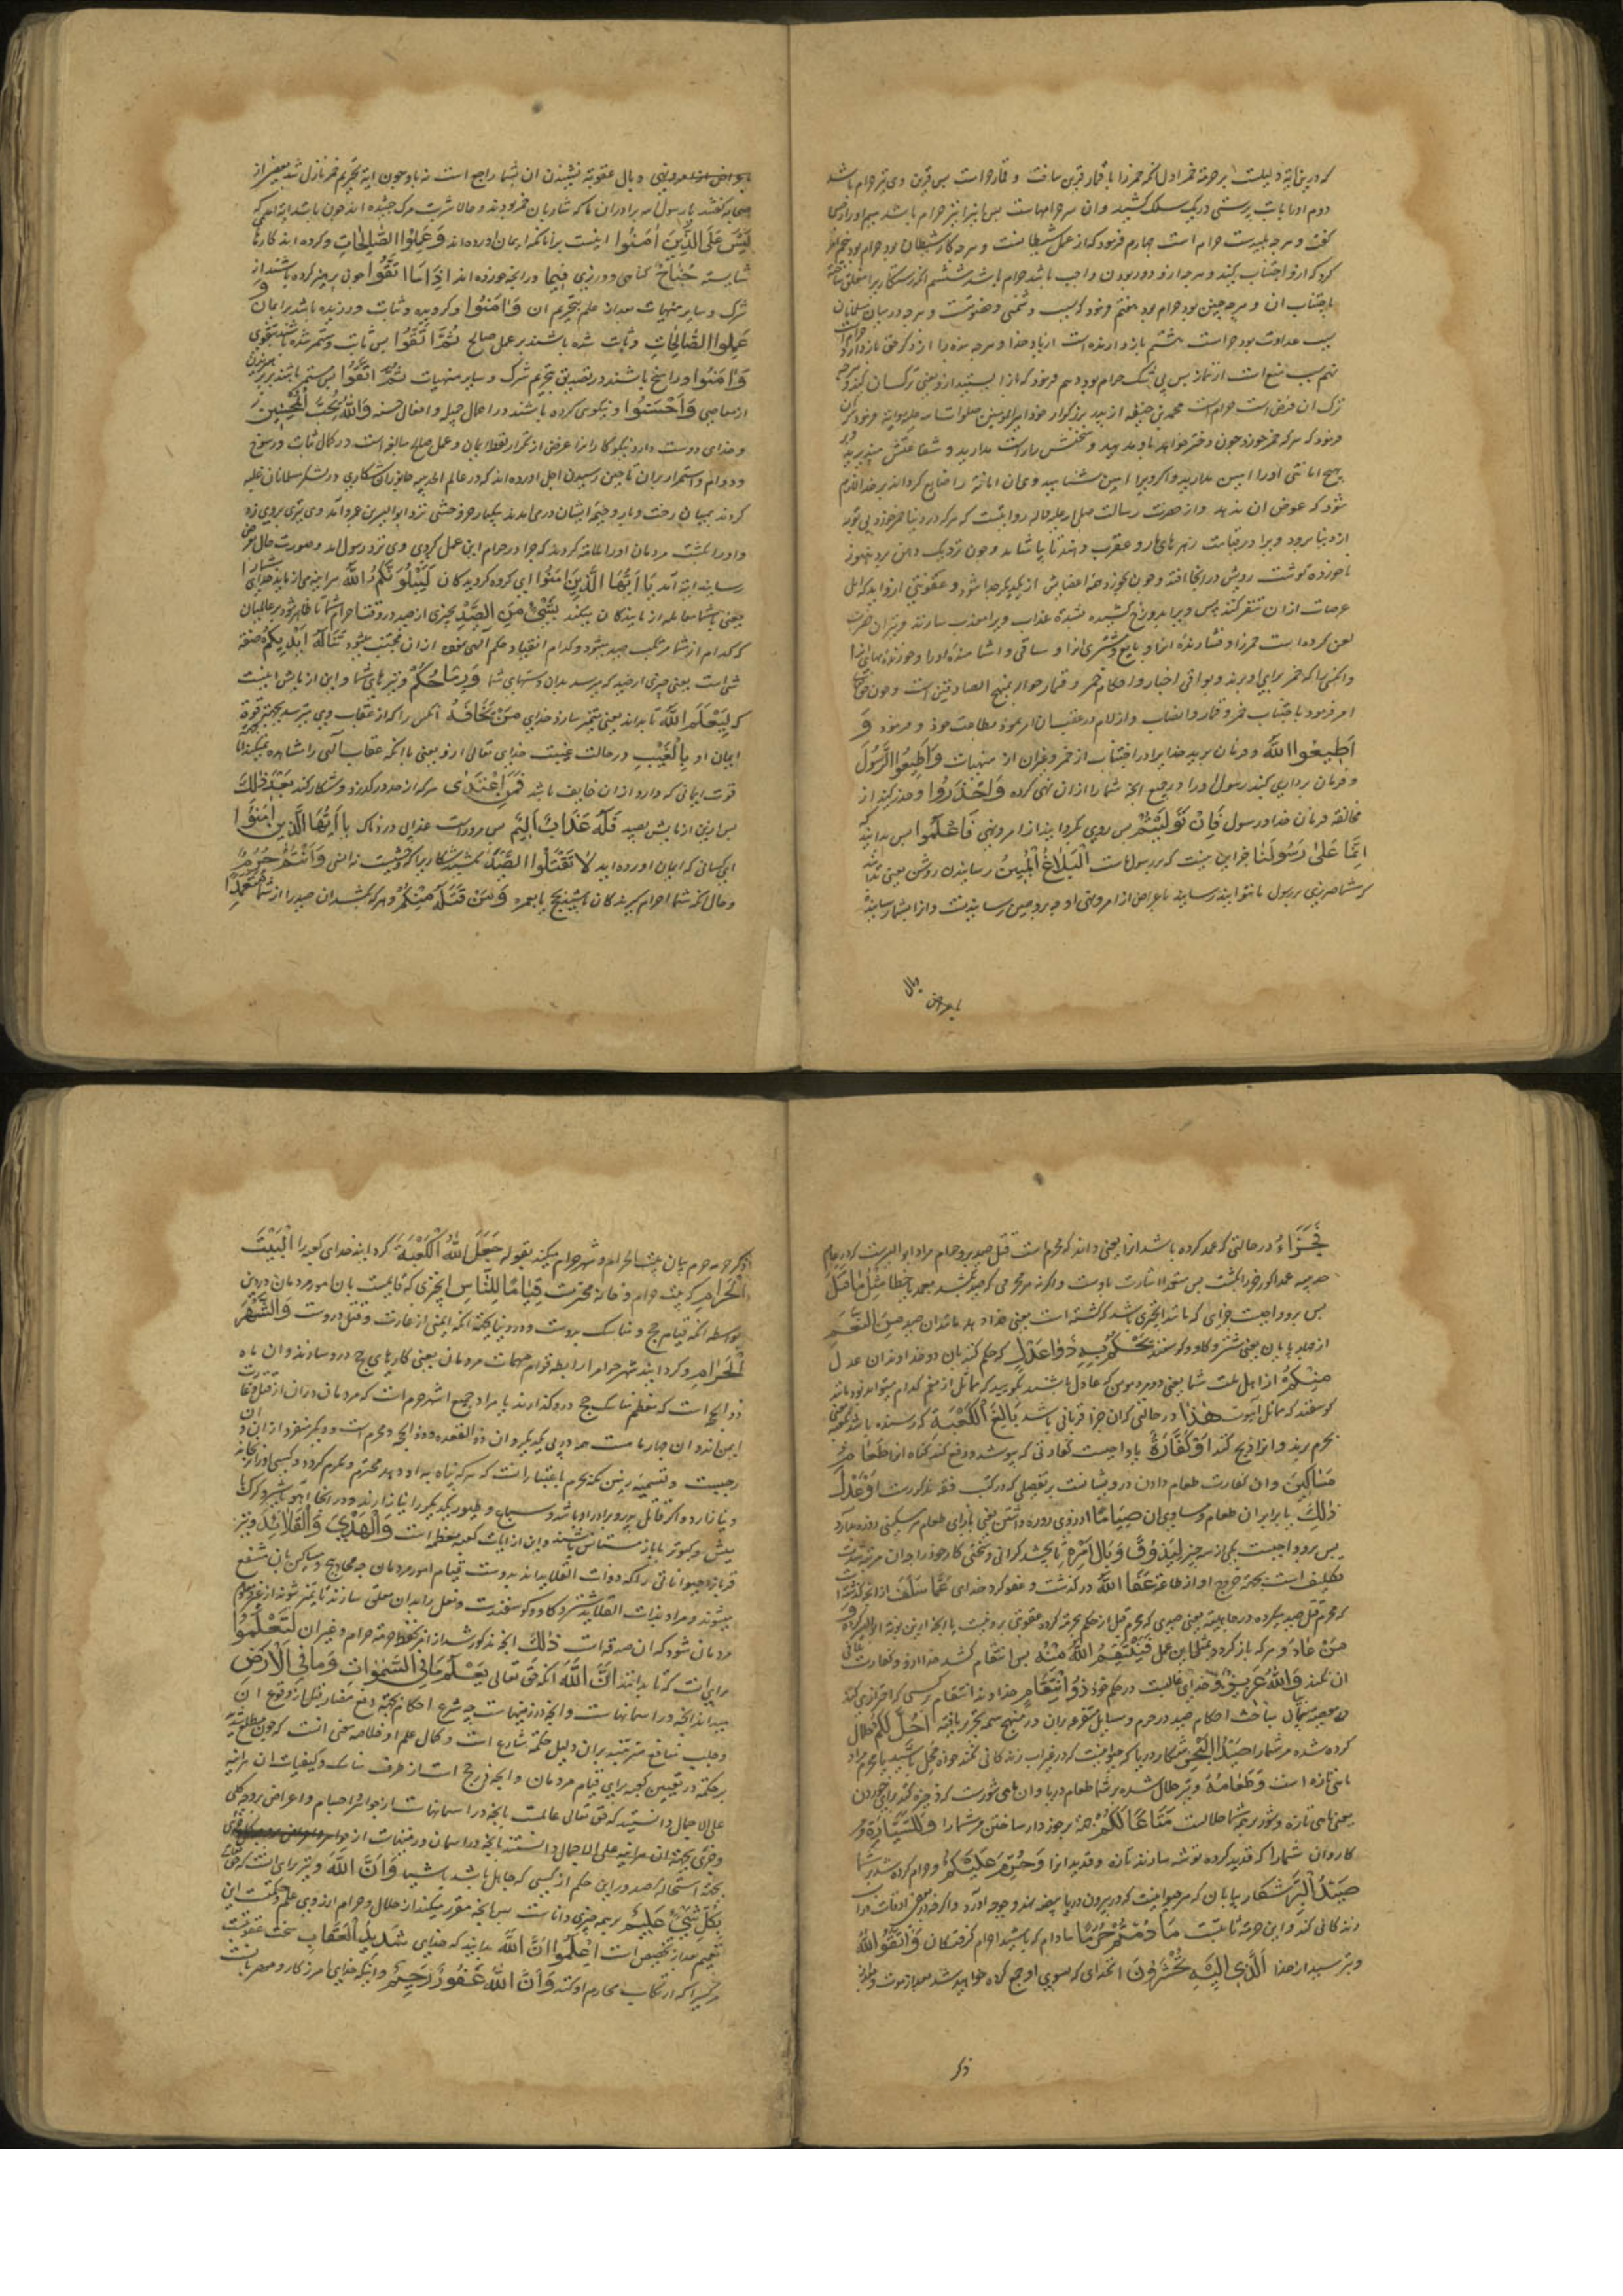 که درین آیه دلیلست بر حرمة خمر اول آنکه خمر را با قمار قرین ساخت و قمار حرامست پس قرین وی نیز حرام باشد
دوم او را با بت پرستی در یک سلک کشید و آن هم حرامهاست پس این نیز حرام باشد سیم او را رجس
گفت و هر چه پلیدست حرام است چهارم فرمود که از عمل شیطانست و هر چه کار شیطان بود حرام بود پنجم امر
کرد که ازو اجتناب کنید و هر چه ازو دور بودن واجب باشد حرام باشد ششم آنکه رستگاری را متعلق ساخته
باجتناب آن و هر چه چنین بود حرام بود هفتم فرمود که سبب دشمنی و خصومتست و هر چه در میان مسلمانان
سبب عداوت بود حرامست هشتم بازدارنده است از یاد خدا و هر چه بنده را از ذکر حق بازدارد
نهم سبب منع است از نماز پس بی شک حرام بود دهم فرمود که باز ایستید ازو یعنی ترک آن کنید و هر چه
ترک آن فرض است حرام است محمد بن حنفیه از پدر بزرگوار خود امیر المؤمنین صلوات الله علیه روایت
فرمود که هر که خمر خورد چون دختر خواهد باو مدهید و سخنش راست مدارید و شفاعتش مپذیرید
هیچ امانتی او را امین مدارید و اگر ویرا امین شناسید و آن امانة را ضایع گرداند بر خدا لازم
شود که عوض آن ندهد و از حضرت رسالت صلی الله علیه و آله روایتست که هر که در دنیا خمر خورد بی توبه
از دنیا برود ویرا در قیامت زهرهای مار و عقرب دهند تا بیاشامد و چون نزدیک دهن برد هنوز
ناخورده گوشت رویش در آنجا افتد و چون بخورد همه اعضایش از یکدیگر جدا شود و عفونتی ازو آید که اهل
عرصات از آن تنفر کنند پس ویرا بدوزخ کشیده بشدة عذاب ویرا معذب سازند و نیز آن حضرت
لعن کرده است خمر را و فشارنده آنرا و بایع و مشتری آنرا و ساقی و آشامنده او را و خورنده بهای آنرا
و آنکس را که خمر برای او برند و بواقی اخبار و احکام خمر و قمار حواله بمنهج الصادقین است و چون حق تعالی
امر فرمود باجتناب خمر و قمار و انصاب و ازلام در عقب آن امر نمود بطاعت خود و فرمود وَ
اَطِیعُوا اللَّهَ و فرمان برید خدا را در اجتناب از خمر و غیر آن از منهیات وَاَطِیعُوا الرَّسُولَ
و فرمان برداری کنید رسول او را در جمیع آنچه شما را از آن نهی کرده وَاحْذَرُوا و حذر کنید از
مخالفة فرمان خدا و رسول فَاِنْ تَوَلَّیْتُمْ پس روی بگردانید از امر و نهی فَاعْلَمُوا پس بدانید که
اِنَّمَا عَلٰی رَسُولِنَا جز این نیست که بر رسول ماست اَلْبَلَاغُ الْمُبِینُ رسانیدن روشن یعنی بدانید
که شما ضرری برسول ما نتوانید رسانید باعراض از امر و نهی او چه برو همین رسانیدنست و از ایشما رسانیده
باعراض وبال
باعراض از امر و نهی وبال عقوبة نشنیدن آن بشما راجع است نه باو چون آیة تحریم خمر نازل شد بعضی از
صحابه گفتند یا رسول الله برادران ما که شاربان خمر بودند و حالا شربت مرگ چشیده اند چون باشد آیة آمد که
لَیْسَ عَلَی الَّذِینَ اٰمَنُوا نیست بر آنانکه ایمان آورده اند وَعَمِلُوا الصَّالِحَاتِ و کرده اند کارهای
شایسته جُنَاحٌ گناهی و وزری فِیمَا در آنچه خورده اند اِذَا مَا اتَّقَوْا چون پرهیز کرده باشند از
شرک و سایر منهیات بعد از علم بتحریم آن وَاٰمَنُوا و گرویده و ثابت ورزیده باشند بر ایمان
عَمِلُوا الصَّالِحَاتِ و ثابت شده باشند بر عمل صالح ثُمَّ اتَّقَوْا پس ثابت و مستمر شده باشند بتقوی
وَاٰمَنُوا و راسخ باشند در تصدیق بتحریم شرک و سایر منهیات ثُمَّ اتَّقَوْا پس مستمر باشند بر پرهیز
از معاصی وَاَحْسَنُوا و نیکویی کرده باشند در اعمال جمیله و افعال حسنه وَاللَّهُ یُحِبُّ الْمُحْسِنِینَ
و خدای دوست دارد نیکوکارانرا غرض از تکرار لفظ ایمان و عمل صالح مبالغه است در کمال ثبات و رسوخ
و دوام و استمرار بر آن تا حین رسیدن اجل آورده اند که در عام الحدیبیه جانوران شکاری در لشکر مسلمانان غلبه
کردند بمیان رخت و بار و خیمه ایشان درمی آمدند یکبار خر وحشی نزد ابو الیسر بن عمرو آمد وی نیزه بر وی زد
و او را بکشت مردمان او را ملامة کردند که چرا در حرام این عمل کردی وی نزد رسول آمد و صورت حال عرض
رسانید آیة آمد یَا اَیُّهَا الَّذِینَ اٰمَنُوا ای گروه گرویدگان لَیَبْلُوَنَّکُمُ اللَّهُ هر آینه می آزماید خدای شما را
یعنی با شما معامله آزمایندگان میکند بِشَیْءٍ مِنَ الصَّیْدِ بچیزی از صید در وقت احرام شما تا ظاهر شود بر عالمیان
که کدام از شما مرتکب صید میشود و کدام انقیاد حکم الهی نموده از آن مجتنب میشود تَنَالُهُ اَیْدِیکُمْ صفة
شی است یعنی چیزی از صید که برسد بدان دستهای شما وَرِمَاحُکُمْ و نیزهای شما و این آزمایش اینست
که لِیَعْلَمَ اللَّهُ تا بداند یعنی متمیز سازد خدای مَنْ یَخَافُهُ آنکس را که از عقاب وی بترسد بجهة قوة
ایمان او بِالْغَیْبِ در حالت غیبت خدای تعالی ازو یعنی با آنکه عقاب الهی را مشاهده نمیکند اما بجهة
قوت ایمانی که دارد از آن خایف باشد فَمَنِ اعْتَدٰی هر که از حد درگذرد و شکار کند بَعْدَ ذٰلِکَ
پس از این آزمایش بصید فَلَهُ عَذَابٌ اَلِیمٌ پس مر وراست عذابی دردناک یَا اَیُّهَا الَّذِینَ اٰمَنُوا
ای کسانی که ایمان آورده اید لَا تَقْتُلُوا الصَّیْدَ مکشید شکاری را که وحشیست نه انسی وَاَنْتُمْ حُرُمٌ
و حال آنکه شما احرام گیرندگان باشید بحج یا بعمره وَمَنْ قَتَلَهُ مِنْکُمْ و هر که بکشد آن صید را از شما مُتَعَمِّدًا
فَجَزَاءٌ در حالتی که عمد کرده باشد آنرا یعنی داند که محرم است و قتل صید برو حرام مراد ابو الیسرست که در عام
حدیبیه عمدا گورخر را بکشت پس متعمدا اشارت باوست و اگرنه هر محرمی که صید بکشد بعمد یا بخطا مِثْلُ مَا قَتَلَ
پس برو واجبست جزایی که مانند آنچیزی باشد که کشته است یعنی فدا دهد مانند آن صید مِنَ النَّعَمِ
از چهارپایان یعنی شتر و گاو و گوسفند یَحْکُمُ بِهِ ذَوَا عَدْلٍ که حکم کنند بآن دو خداوندان عدل
مِنْکُمْ از اهل ملت شما یعنی دو مرد مؤمن که عادل باشند بگویند که مماثل از نعم کدام میتواند بود مانند
گوسفند که مماثل آهوست هَدْیًا در حالتی که آن جزا قربانی باشد بَالِغَ الْکَعْبَةِ که رسنده باشد بکعبه یعنی
بحرم برند و آنرا ذبح کنند اَوْ کَفَّارَةٌ یا واجبست کفارتی که بپوشد و دفع کند گناه آنرا طَعَامُ
مَسَاکِینَ و آن کفارت طعام دادن درویشانست بر تفصیلی که در کتب فقه مذکورست اَوْ عَدْلُ
ذٰلِکَ یا برابر آن طعام و مساوی آن صِیَامًا از روی روزه داشتن یعنی بازای طعام هر مسکینی روزه بدارد
پس برو واجبست یکی از سه چیز لِیَذُوقَ وَبَالَ اَمْرِهِ تا بچشد گرانی و سختی کار خود را و آن مرتبة شدت
تکلیف است بجهة خروج او از طاعة عَفَا اللَّهُ درگذشت و عفو کرد خدای عَمَّا سَلَفَ از آنچه گذشته است
که محرم قتل صید میکرده در جاهلیة یعنی صیدی که محرم قبل از حکم بحرمة کرده عقوبتی برو نیست یا آنچه ازین نوبة ابو الیسر کرده وَ
مَنْ عَادَ و هر که باز گردد بمثل این عمل فَیَنْتَقِمُ اللَّهُ مِنْهُ پس انتقام کشد خدا ازو و کفارت ثانی
آن نکند وَاللَّهُ عَزِیزٌ و خدای غالبست در حکم خود ذُو انْتِقَامٍ خداوند انتقام از کسی که اصرار نماید
بر معصیة مباحث احکام صید در حرم و مسایل متفرعه بر آن در منهج سمة تحریر یافته اُحِلَّ لَکُمْ حلال
کرده شده مر شما را صَیْدُ الْبَحْرِ شکار دریا که حیوانیست که در غیر آب زندگانی نکند خواه محل باشید یا محرم مراد
ماهی تازه است وَطَعَامُهُ و نیز حلال شده بر شما طعام دریا و آن ماهی شورست که ذخیره کنند برای خوردن
یعنی ماهی تازه و شور بر همه شما حلالست مَتَاعًا لَکُمْ جهة برخوردار ساختن مر شما را وَلِلسَّیَّارَةِ و مر
کاروان شما را که قدید کرده توشه سازند تازه و قدید آنرا وَحُرِّمَ عَلَیْکُمْ و حرام کرده شد بر شما
صَیْدُ الْبَرِّ شکار بیابان که هر حیوانیست که در بیرون دریا بیضه نهد و جوجه آورد و اگر خود در بعضی اوقات در آب
زندگانی کند و این حرمة ثابتست مَا دُمْتُمْ حُرُمًا مادام که باشید احرام گرفتگان وَاتَّقُوا اللَّهَ
و بترسید از خدا الَّذِی اِلَیْهِ تُحْشَرُونَ آنخدای که بسوی او جمع کرده خواهید شد بعد از موت و چون
ذکر
ذکر حرمة حرم بیان بیت الحرام و شهر حرام میکند بقوله جَعَلَ اللَّهُ الْکَعْبَةَ گردانید خدای کعبه را الْبَیْتَ
الْحَرَامَ که بیت حرام و خانه محترمست قِیَامًا لِلنَّاسِ آنچیزی که قایمست بآن امور مردمان در دین
بواسطه آنکه قیام حج و مناسک بدوست و در دنیا بجهة آنکه ایمنی از غارت و قتل دروست وَالشَّهْرَ
الْحَرَامَ و گردانید شهر حرام را رابطه قوام مهمات مردمان یعنی کارهای حج درو سازند و آن ماه
ذو الحجه است که معظم مناسک حج درو گذارند یا مراد جمیع اشهر حرم است که مردمان در آن از قتل و غارت
ایمن اند و آن چهار ماست سه در پی یکدیگر و آن ذو القعده و ذو الحجه و محرم است و دیگر منفرد از آن و آن
رجبست و تسمیه زمین مکه بحرم باعتبار آنست که هر که پناه باو دهد محترم و مکرم گردد و کسی او را نرنجاند
و نیازارد و اگر قاتل پدر و برادر او باشد و سباع و طیور یکدیگر را نیازارند و در آنجا آهو با شیر و گرگ با
میش و کبوتر با باز مستانس باشند و این از آیات کعبه معظمه است وَالْهَدْیَ وَالْقَلَائِدَ و نیز
قرباندن حیواناتی را که ذوات القلایدند بدوست قیام امور مردمان چه محاویج و مساکین بآن منتفع
میشوند و مراد بذات القلاید شتر و گاو و گوسفندست و نعل را بدان معلق سازند تا متمیز شوند از غیر و معلوم
مردمان شود که آن صدقه است ذٰلِکَ آنچه مذکور شد از امر بحفظ حرمة حرام و غیر آن لِتَعْلَمُوا
برای آنست که تا بدانید اَنَّ اللَّهَ آنکه حق تعالی یَعْلَمُ مَا فِی السَّمٰوَاتِ وَمَا فِی الْاَرْضِ
میداند آنچه در آسمانهاست و آنچه در زمینهاست چه شرع احکام بجهة دفع مضار قبل از وقوع آن
و جلب منافع مترتبه بر آن دلیل حکمة شارع است و کمال علم او خلاصه سخن آنست که چون مطلع شدید
بر حکمة در تعیین کعبه برای قیام مردمان و آنچه فرع حج است از طرف مناسک و کیفیات آن هر آینه
علی الاجمال دانستید که حق تعالی عالمست بآنچه در آسمانهاست از جواهر و اجسام و اعراض بروجه کلی
و جزئی بجهة آن هر آینه علی الاجمال دانستند بآنچه در آسمان و زمینهاست از
بجهة استحاله صدور این حکم از کسی که جاهل باشد باشیا وَاَنَّ اللَّهَ و نیز برای آنست که حق تعالی
بِکُلِّ شَیْءٍ عَلِیمٌ بر همه چیزی داناست پس آنچه مقرر میکند از حلال و حرام از روی علم و حکمت این
تعمیم بعد از تخصیص است اِعْلَمُوا اَنَّ اللَّهَ بدانید که خدای شَدِیدُ الْعِقَابِ سخت عقوبتست
هر کسی را که ارتکاب محارم او کند وَاَنَّ اللَّهَ غَفُورٌ رَحِیمٌ و اینکه خدای آمرزگار و مهربانست